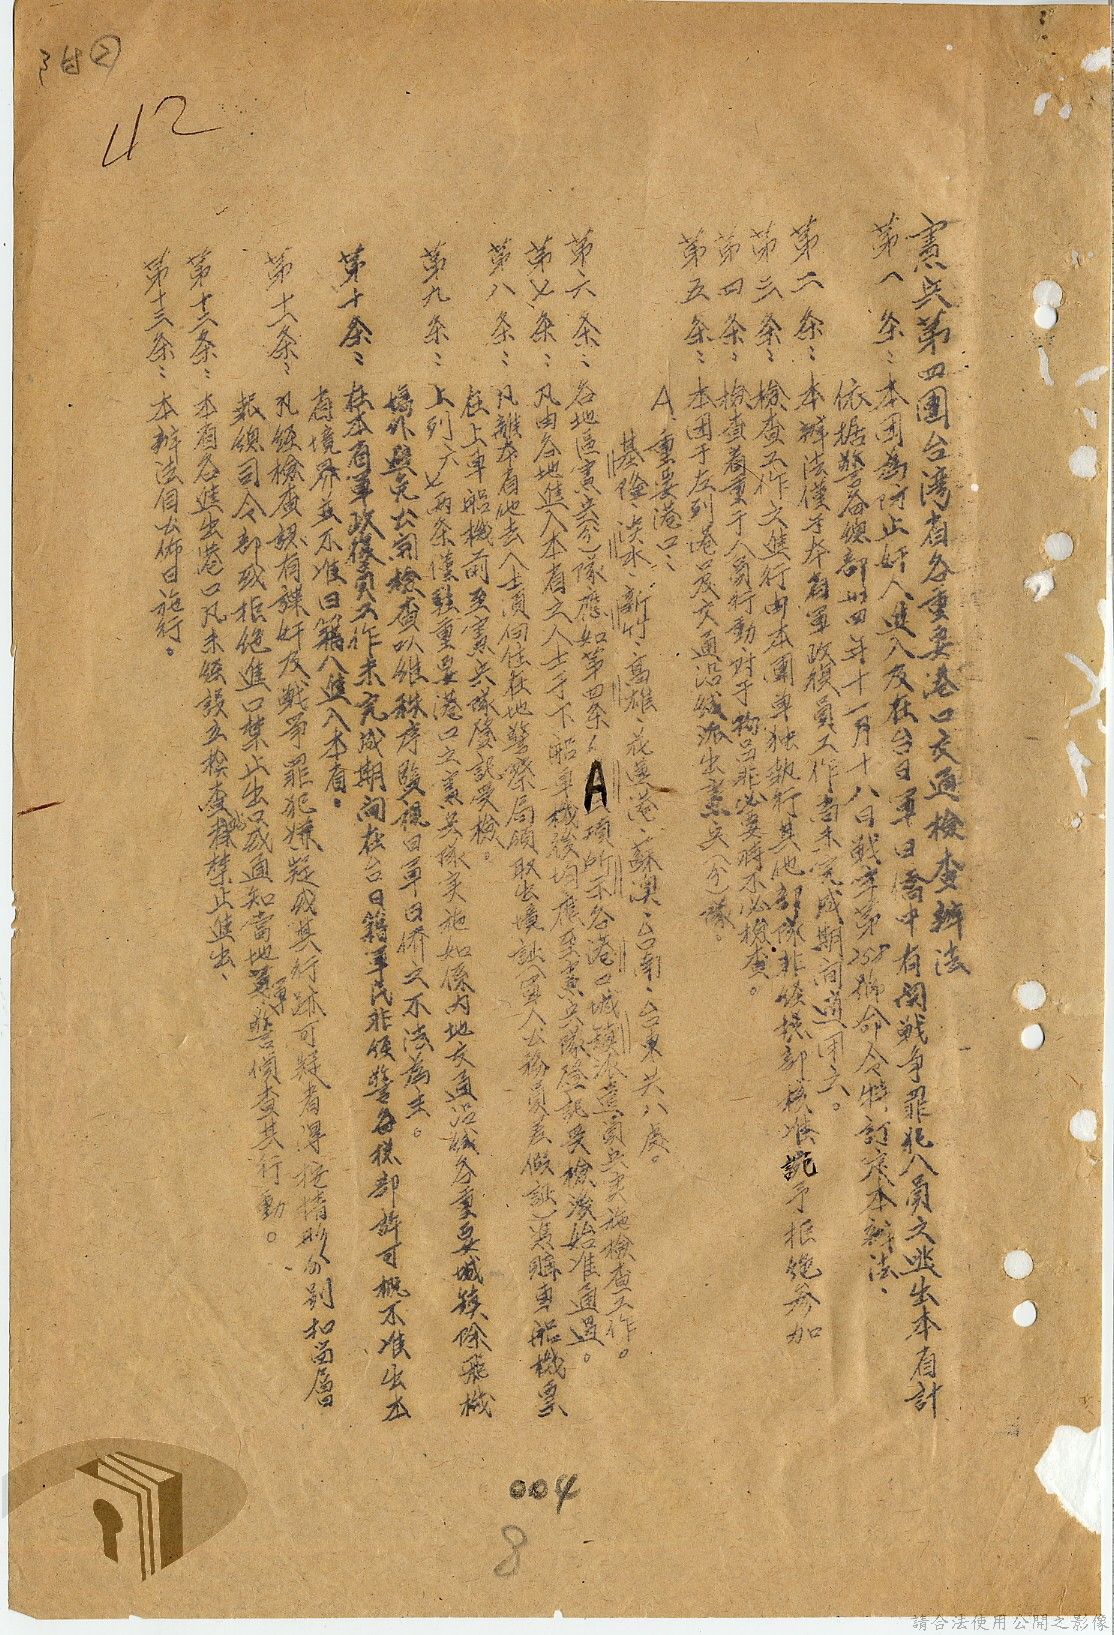 附②
42
憲兵第四團台湾省各重要港口交通檢查辦法
第一条：本团為防止奸人進入及在台日軍日僑中有関戦争罪犯人員之逃出本省計
依据警备總部卅四年十一月十八日戦字第258號命令特訂定本辦法、
第二条：本辦法僅于本省軍政復員工作尚未完成期间適用之。
第三条：檢查工作之進行由本團单独執行其他部隊非經総部核准 予拒绝参加
第四条：檢查着重于人員行動对于物品非必要時不必檢查。
第五条：本团于左列港口及交通沿线派出憲兵分隊。
A、重要港口：
基隆、淡水、新竹、高雄、花蓮港、蘇澳、台南、台東共八處。
第六条：各地區憲兵分隊應如第四条（A）項所示各港口城鎮派遣憲兵实施檢查工作。
第七条：凡由各地進入本省之人士于下船車機後均應至憲兵隊登記受檢後始准通過。
第八条：凡離本省他去人士須向住在地警察局領取出境証（軍人公務員差假証）憑購車船機票
在上車船機前至憲兵隊登記受檢。
第九条：上列六七两条僅駐重要港口之憲兵隊实施如係内地交通沿线各重要城鎮除飛機
場外 免公開檢查以維秩序监視日軍日僑之不法為主。
第十条：在本省軍政復員工作未完成期间在台日籍軍民非領警备總部許可概不准出本
省境界並不准日籍人進入本省。
第十一条：凡經檢查認有諜奸及戦争罪犯嫌疑或其行跡可疑者得按情形分别扣留層
報總司令部或拒绝進口禁止出口或通知當地軍憲警偵查其行動。
第十二条：本省各進出港口凡未經設立檢查 禁止進出、
第十三条：本辦法自公佈日施行。
004
8
請合法使用公開之影像